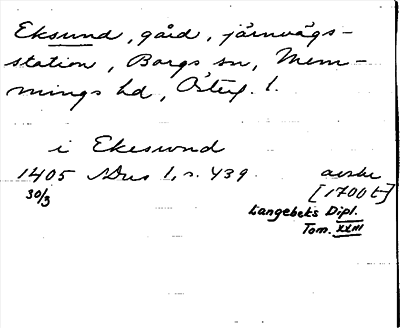 Eksund, gård, järnvägs-
station, Borgs sn, Mem-
mings hd, Österg. l.
i Ekesund
1405 SDns 1, s. 439. avskr
30/3 [1700 t]
Langebeks Dipl.
Tom. XXIII